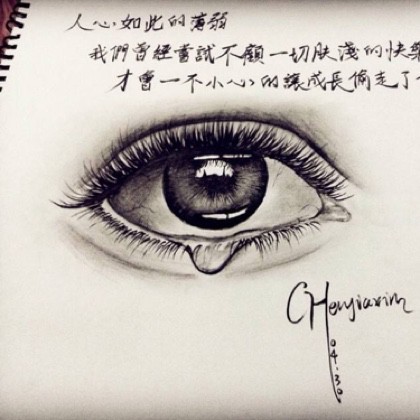 人心如此的薄弱
我們曾經嘗試不顧一切膚淺的快樂
才會一不小心的讓成長偷走了
CHenjiaxin
04.30